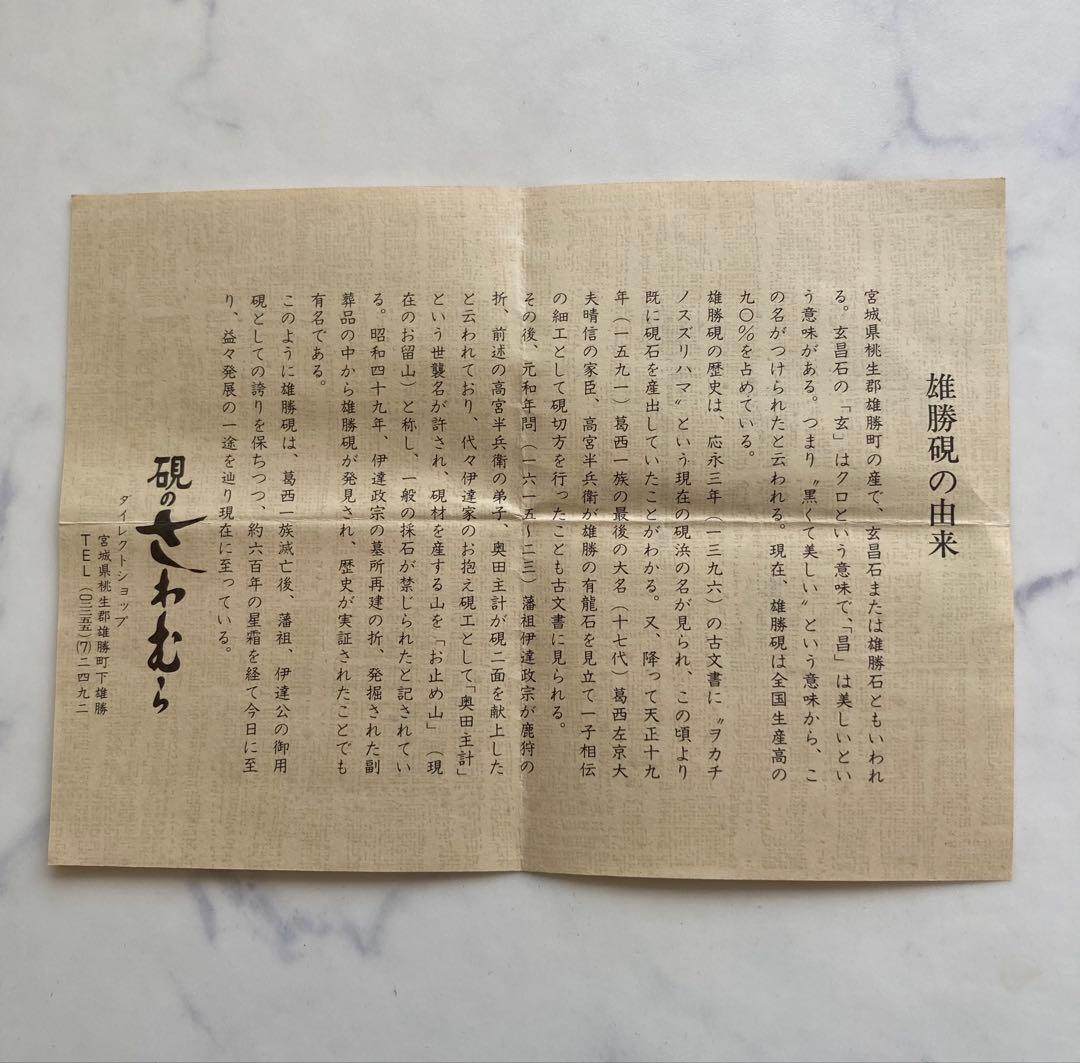 雄勝硯の由来
宮城県桃生郡雄勝町の産で、玄昌石または雄勝石ともいわれ
る。玄昌石の「玄」はクロという意味で、「昌」は美しいとい
う意味がある。つまり〝黒くて美しい〟という意味から、こ
の名がつけられたと云われる。現在、雄勝硯は全国生産高の
九〇%を占めている。
雄勝硯の歴史は、応永三年(一三九六)の古文書に〝ヲカチ
ノスズリハマ〟という現在の硯浜の名が見られ、この頃より
既に硯石を産出していたことがわかる。又、降って天正十九
年(一五九一)葛西一族の最後の大名(十七代)葛西左京大
夫晴信の家臣、高宮半兵衛が雄勝の有龍石を見立て一子相伝
の細工として硯切方を行ったことも古文書に見られる。
その後、元和年間(一六一五〜二三)藩祖伊達政宗が鹿狩の
折、前述の高宮半兵衛の弟子、奥田主計が硯二面を献上した
と云われており、代々伊達家のお抱え硯工として「奥田主計」
という世襲名が許され、硯材を産する山を「お止め山」(現
在のお留山)と称し、一般の採石が禁じられたと記されてい
る。昭和四十九年、伊達政宗の墓所再建の折、発掘された副
葬品の中から雄勝硯が発見され、歴史が実証されたことでも
有名である。
このように雄勝硯は、葛西一族滅亡後、藩祖、伊達公の御用
硯としての誇りを保ちつつ、約六百年の星霜を経て今日に至
り、益々発展の一途を辿り現在に至っている。
硯のさわむら
ダイレクトショップ
宮城県桃生郡雄勝町下雄勝
TEL(〇二二五五)(7)二四九二